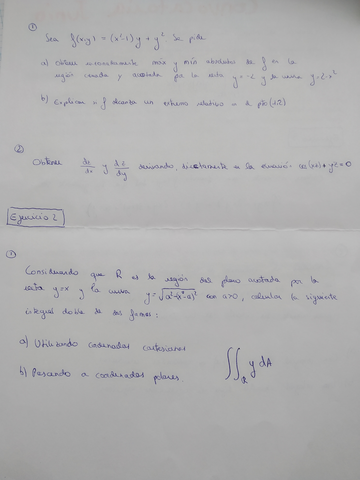 ①
Sea f(x,y) = (x²-1) y + y² Se pide
a) Obtener razonadamente máx y mín absolutos de f en la
región cerrada y acotada por la recta y = -2 y la curva y = 2-x²
b) Explicar si f alcanza un extremo relativo en el pto (1,2)
②
Obtener dz/dx y dz/dy derivando directamente en la ecuación: cos(xz) + yz = 0
Ejercicio 2
①
Considerando que R es la región del plano acotada por la
recta y=x y la curva y = √a²-(x-a)² con a>0, calcular la siguiente
integral doble de dos formas:
a) Utilizando coordenadas cartesianas
b) Pasando a coordenadas polares
∬R y dA